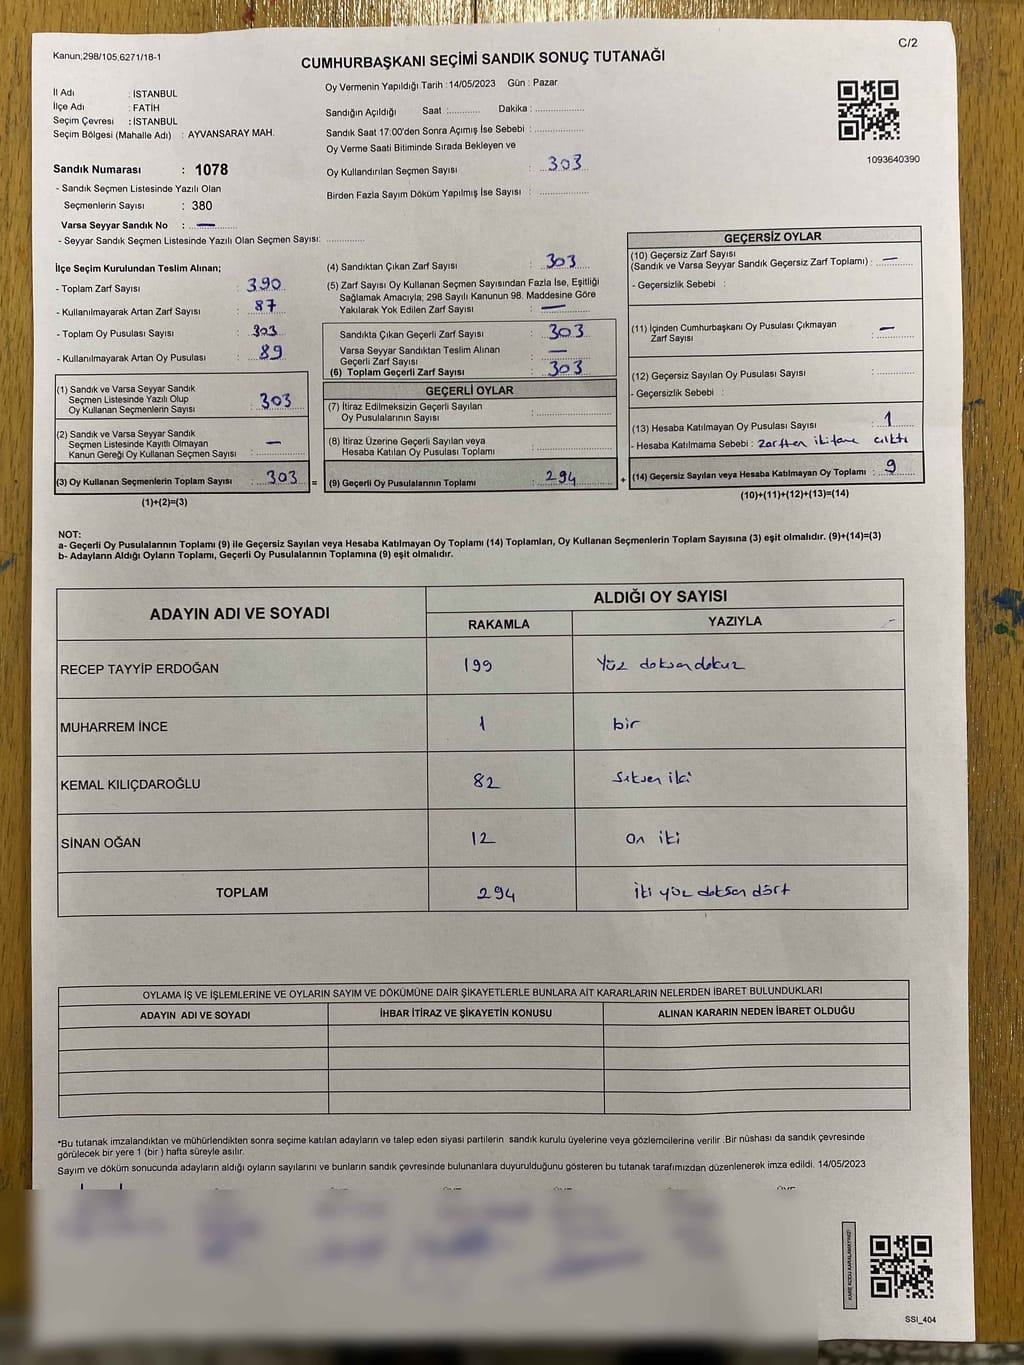 Kanun;298/105,6271/18-1
C/2
CUMHURBAŞKANI SEÇİMİ SANDIK SONUÇ TUTANAĞI
İl Adı : İSTANBUL
İlçe Adı : FATİH
Seçim Çevresi : İSTANBUL
Seçim Bölgesi (Mahalle Adı) : AYVANSARAY MAH.
Oy Vermenin Yapıldığı Tarih :14/05/2023 Gün : Pazar
Sandığın Açıldığı Saat :........... Dakika :................
Sandık Saat 17:00'den Sonra Açımış İse Sebebi :................
Oy Verme Saati Bitiminde Sırada Bekleyen ve
Oy Kullandırılan Seçmen Sayısı : 303
Birden Fazla Sayım Döküm Yapılmış İse Sayısı :................
1093640390
Sandık Numarası : 1078
- Sandık Seçmen Listesinde Yazılı Olan
Seçmenlerin Sayısı : 380
Varsa Seyyar Sandık No : —
- Seyyar Sandık Seçmen Listesinde Yazılı Olan Seçmen Sayısı:.............
İlçe Seçim Kurulundan Teslim Alınan;
- Toplam Zarf Sayısı : 390
- Kullanılmayarak Artan Zarf Sayısı : 87
- Toplam Oy Pusulası Sayısı : 303
- Kullanılmayarak Artan Oy Pusulası : 89
(1) Sandık ve Varsa Seyyar Sandık
Seçmen Listesinde Yazılı Olup
Oy Kullanan Seçmenlerin Sayısı : 303
(2) Sandık ve Varsa Seyyar Sandık
Seçmen Listesinde Kayıtlı Olmayan
Kanun Gereği Oy Kullanan Seçmen Sayısı : —
(3) Oy Kullanan Seçmenlerin Toplam Sayısı : 303 =
(1)+(2)=(3)
(4) Sandıktan Çıkan Zarf Sayısı : 303
(5) Zarf Sayısı Oy Kullanan Seçmen Sayısından Fazla İse, Eşitliği
Sağlamak Amacıyla; 298 Sayılı Kanunun 98. Maddesine Göre
Yakılarak Yok Edilen Zarf Sayısı : —
Sandıkta Çıkan Geçerli Zarf Sayısı : 303
Varsa Seyyar Sandıktan Teslim Alınan
Geçerli Zarf Sayısı : —
(6) Toplam Geçerli Zarf Sayısı : 303
GEÇERLİ OYLAR
(7) İtiraz Edilmeksizin Geçerli Sayılan
Oy Pusulalarının Sayısı :................
(8) İtiraz Üzerine Geçerli Sayılan veya
Hesaba Katılan Oy Pusulası Toplamı :................
(9) Geçerli Oy Pusulalarının Toplamı : 294 +
GEÇERSİZ OYLAR
(10) Geçersiz Zarf Sayısı
(Sandık ve Varsa Seyyar Sandık Geçersiz Zarf Toplamı) : —
- Geçersizlik Sebebi :
(11) İçinden Cumhurbaşkanı Oy Pusulası Çıkmayan
Zarf Sayısı : —
(12) Geçersiz Sayılan Oy Pusulası Sayısı :..........
- Geçersizlik Sebebi :
(13) Hesaba Katılmayan Oy Pusulası Sayısı : 1
- Hesaba Katılmama Sebebi : zarftan iki tane çıktı
(14) Geçersiz Sayılan veya Hesaba Katılmayan Oy Toplamı : 9
(10)+(11)+(12)+(13)=(14)
NOT:
a- Geçerli Oy Pusulalarının Toplamı (9) ile Geçersiz Sayılan veya Hesaba Katılmayan Oy Toplamı (14) Toplamları, Oy Kullanan Seçmenlerin Toplam Sayısına (3) eşit olmalıdır. (9)+(14)=(3)
b- Adayların Aldığı Oyların Toplamı, Geçerli Oy Pusulalarının Toplamına (9) eşit olmalıdır.
ADAYIN ADI VE SOYADI
ALDIĞI OY SAYISI
RAKAMLA YAZIYLA
RECEP TAYYİP ERDOĞAN 199 Yüz doksan dokuz
MUHARREM İNCE 1 bir
KEMAL KILIÇDAROĞLU 82 seksen iki
SİNAN OĞAN 12 on iki
TOPLAM 294 iki yüz doksan dört
OYLAMA İŞ VE İŞLEMLERİNE VE OYLARIN SAYIM VE DÖKÜMÜNE DAİR ŞİKAYETLERLE BUNLARA AİT KARARLARIN NELERDEN İBARET BULUNDUKLARI
ADAYIN ADI VE SOYADI İHBAR İTİRAZ VE ŞİKAYETİN KONUSU ALINAN KARARIN NEDEN İBARET OLDUĞU
*Bu tutanak imzalandıktan ve mühürlendikten sonra seçime katılan adayların ve talep eden siyasi partilerin sandık kurulu üyelerine veya gözlemcilerine verilir .Bir nüshası da sandık çevresinde
görülecek bir yere 1 (bir ) hafta süreyle asılır.
Sayım ve döküm sonucunda adayların aldığı oyların sayılarını ve bunların sandık çevresinde bulunanlara duyurulduğunu gösteren bu tutanak tarafımızdan düzenlenerek imza edildi. 14/05/2023
KARE KODU KARALAMAYINIZ!
SSI_404